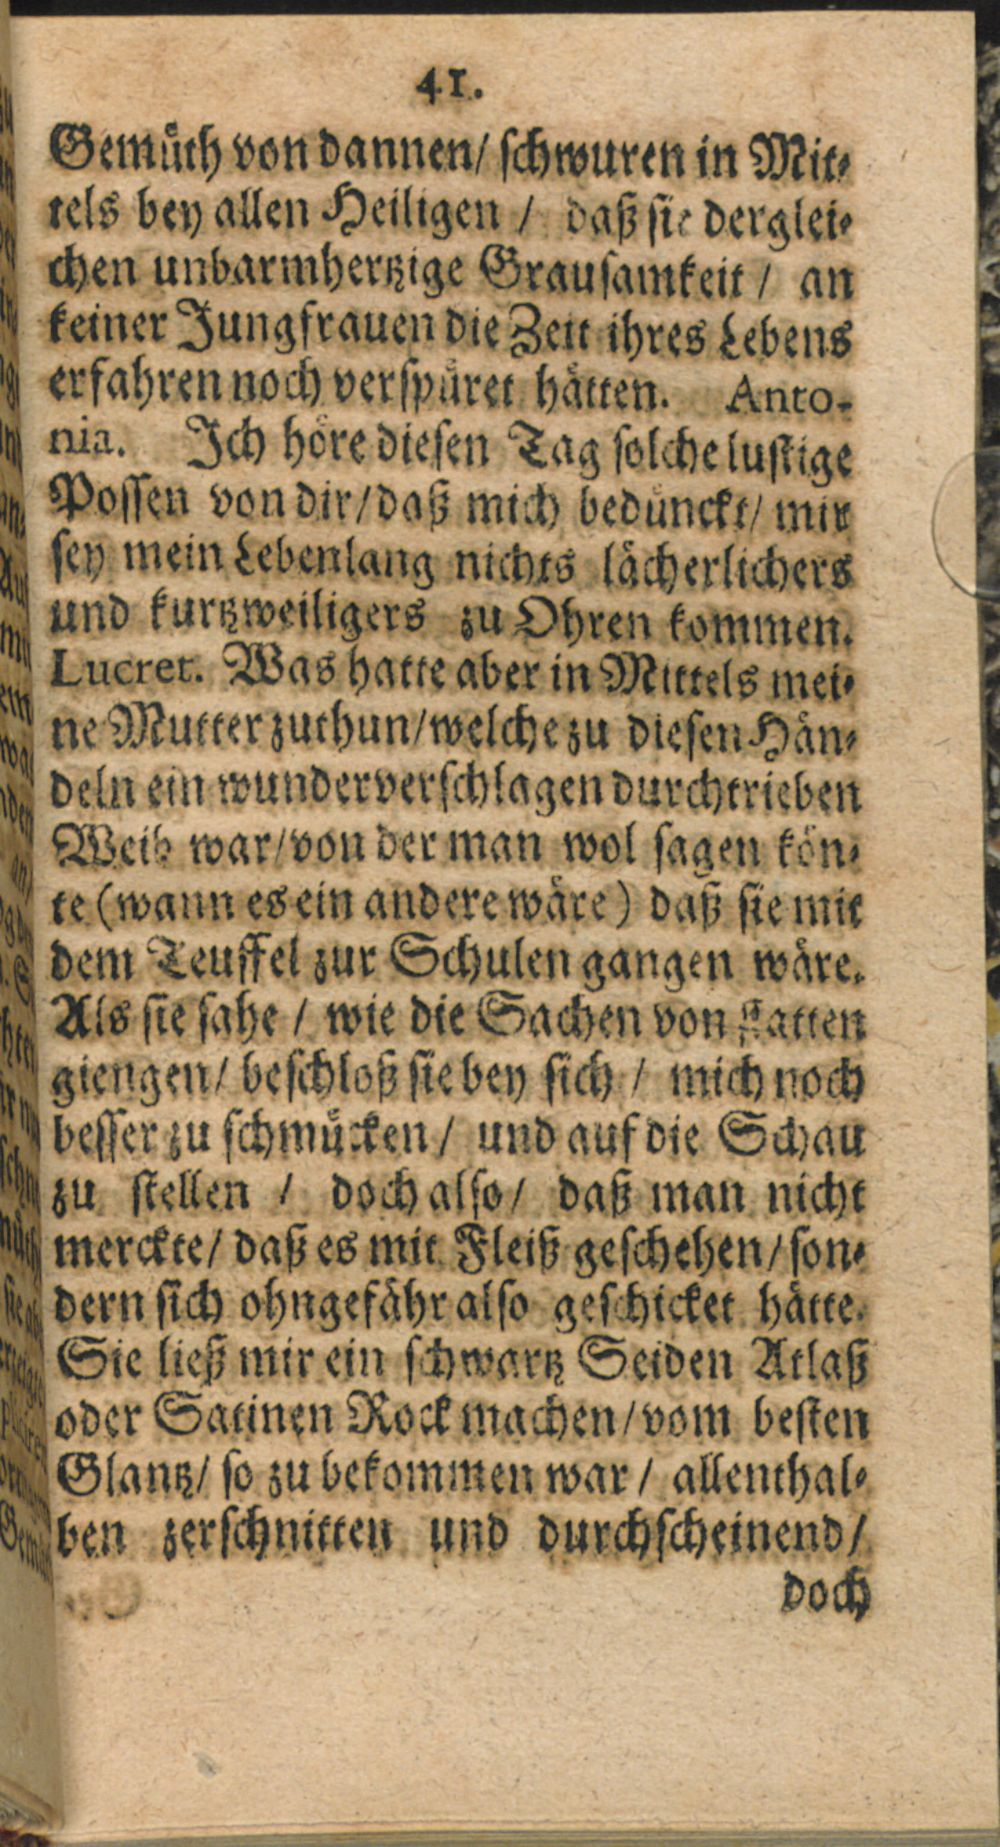 41.
Gemuͤth von dannen/ ſchwuren in Mit⸗
tels bey allen Heiligen / daß ſie derglei⸗
chen unbarmhertzige Grauſamkeit / an
keiner Jungfrauen die Zeit ihres Lebens
erfahren noch verſpuͤret haͤtten. Anto-
nia. Ich hoͤre dieſen Tag ſolche luſtige
Poſſen von dir/ daß mich beduͤnckt/ mir
ſey mein Lebenlang nichts laͤcherlichers
und kurtzweiligers zu Ohren kommen.
Lucret. Was hatte aber in Mittels mei⸗
ne Mutter zuthun/ welche zu dieſen Haͤn⸗
deln ein wunderverſchlagen durchtrieben
Weib war/ von der man wol ſagen koͤn⸗
te (wann es ein andere waͤre) daß ſie mit
dem Teuffel zur Schulen gangen waͤre.
Als ſie ſahe / wie die Sachen von ſtatten
giengen/ beſchloß ſie bey ſich / mich noch
beſſer zu ſchmuͤcken / und auf die Schau
zu ſtellen / doch alſo/ daß man nicht
merckte/ daß es mit Fleiß geſchehen/ ſon⸗
dern ſich ohngefaͤhr alſo geſchicket haͤtte.
Sie ließ mir ein ſchwartz Seiden Atlaß
oder Satinen Rock machen/ vom beſten
Glantz/ ſo zu bekommen war / allenthal⸗
ben zerſchnitten und durchſcheinend/
doch